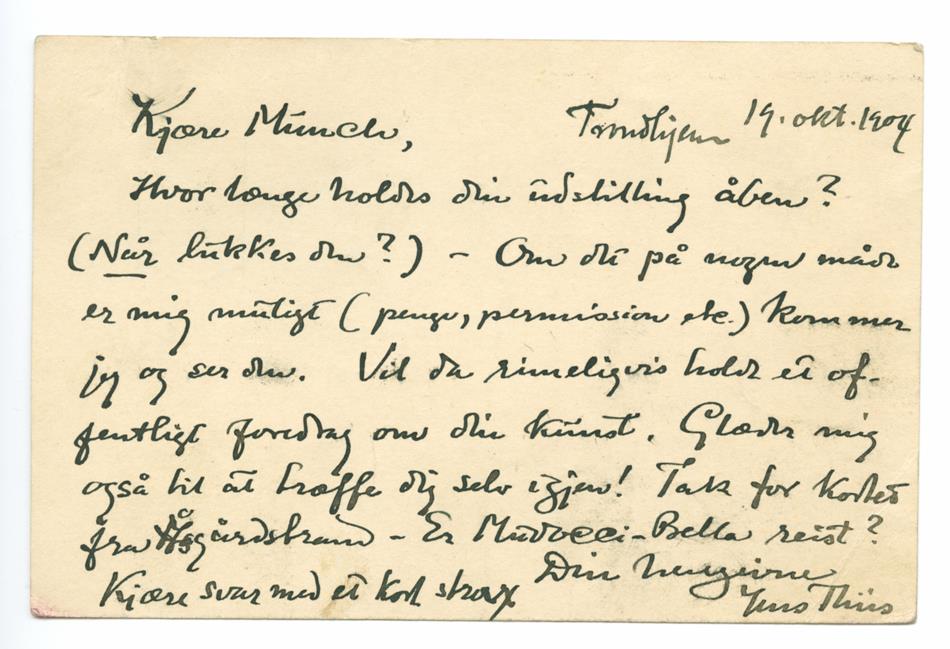 Kjære Munch,
Trondhjem 19. okt. 1904
Hvor længe holdes din udstilling åben?
(Når lukkes den?) – Om det på nogen måde
er mig muligt (penge, permission etc.) kommer
jeg og ser den. Vil da rimeligvis holde et of-
fentligt foredrag om din kunst. Glæder mig
også til at træffe dig selv igjen! Tak for kortet
fra Åsgårdstrand – Er Mudocci-Bella reist?
Din hengivne
Kjære svar med et kort strax
Jens Thiis